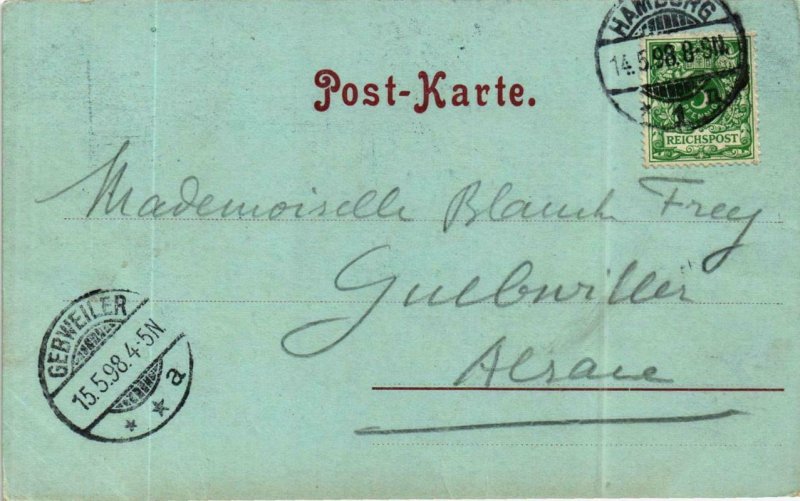 HAMBURG
14.5.98.8-9N.
1.
5
REICHSPOST
Post-Karte.
Mademoiselle Blanch Frey
Guebwiller
Alsace
GEBWEILER
15.5.98.4-5N.
* * a